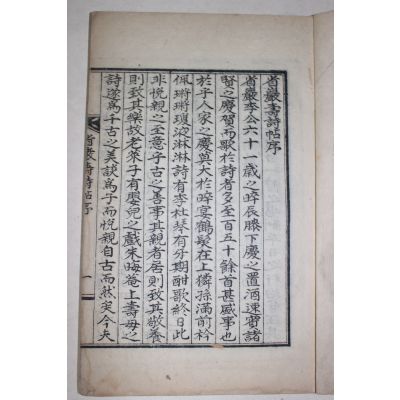 省巖壽詩帖序
省巖李公六十一歲之晬辰膝下慶之置酒速賓諸
賢之慶賀而歌於詩者多至百五十餘首甚盛事也
於乎人家之慶莫大於晬宴鶴髮在上獜孫滿前衿
佩瑯瑯瓊液淋淋詩有李杜琴有牙期酣歌終日此
非悅親之至意乎古之善事其親者居則致其敬養
則致其樂故老萊子有嬰兒之戲朱晦菴上壽母之
詩遂爲千古之美談爲子而悅親自古而然矣今夫
省巖壽詩帖序
一